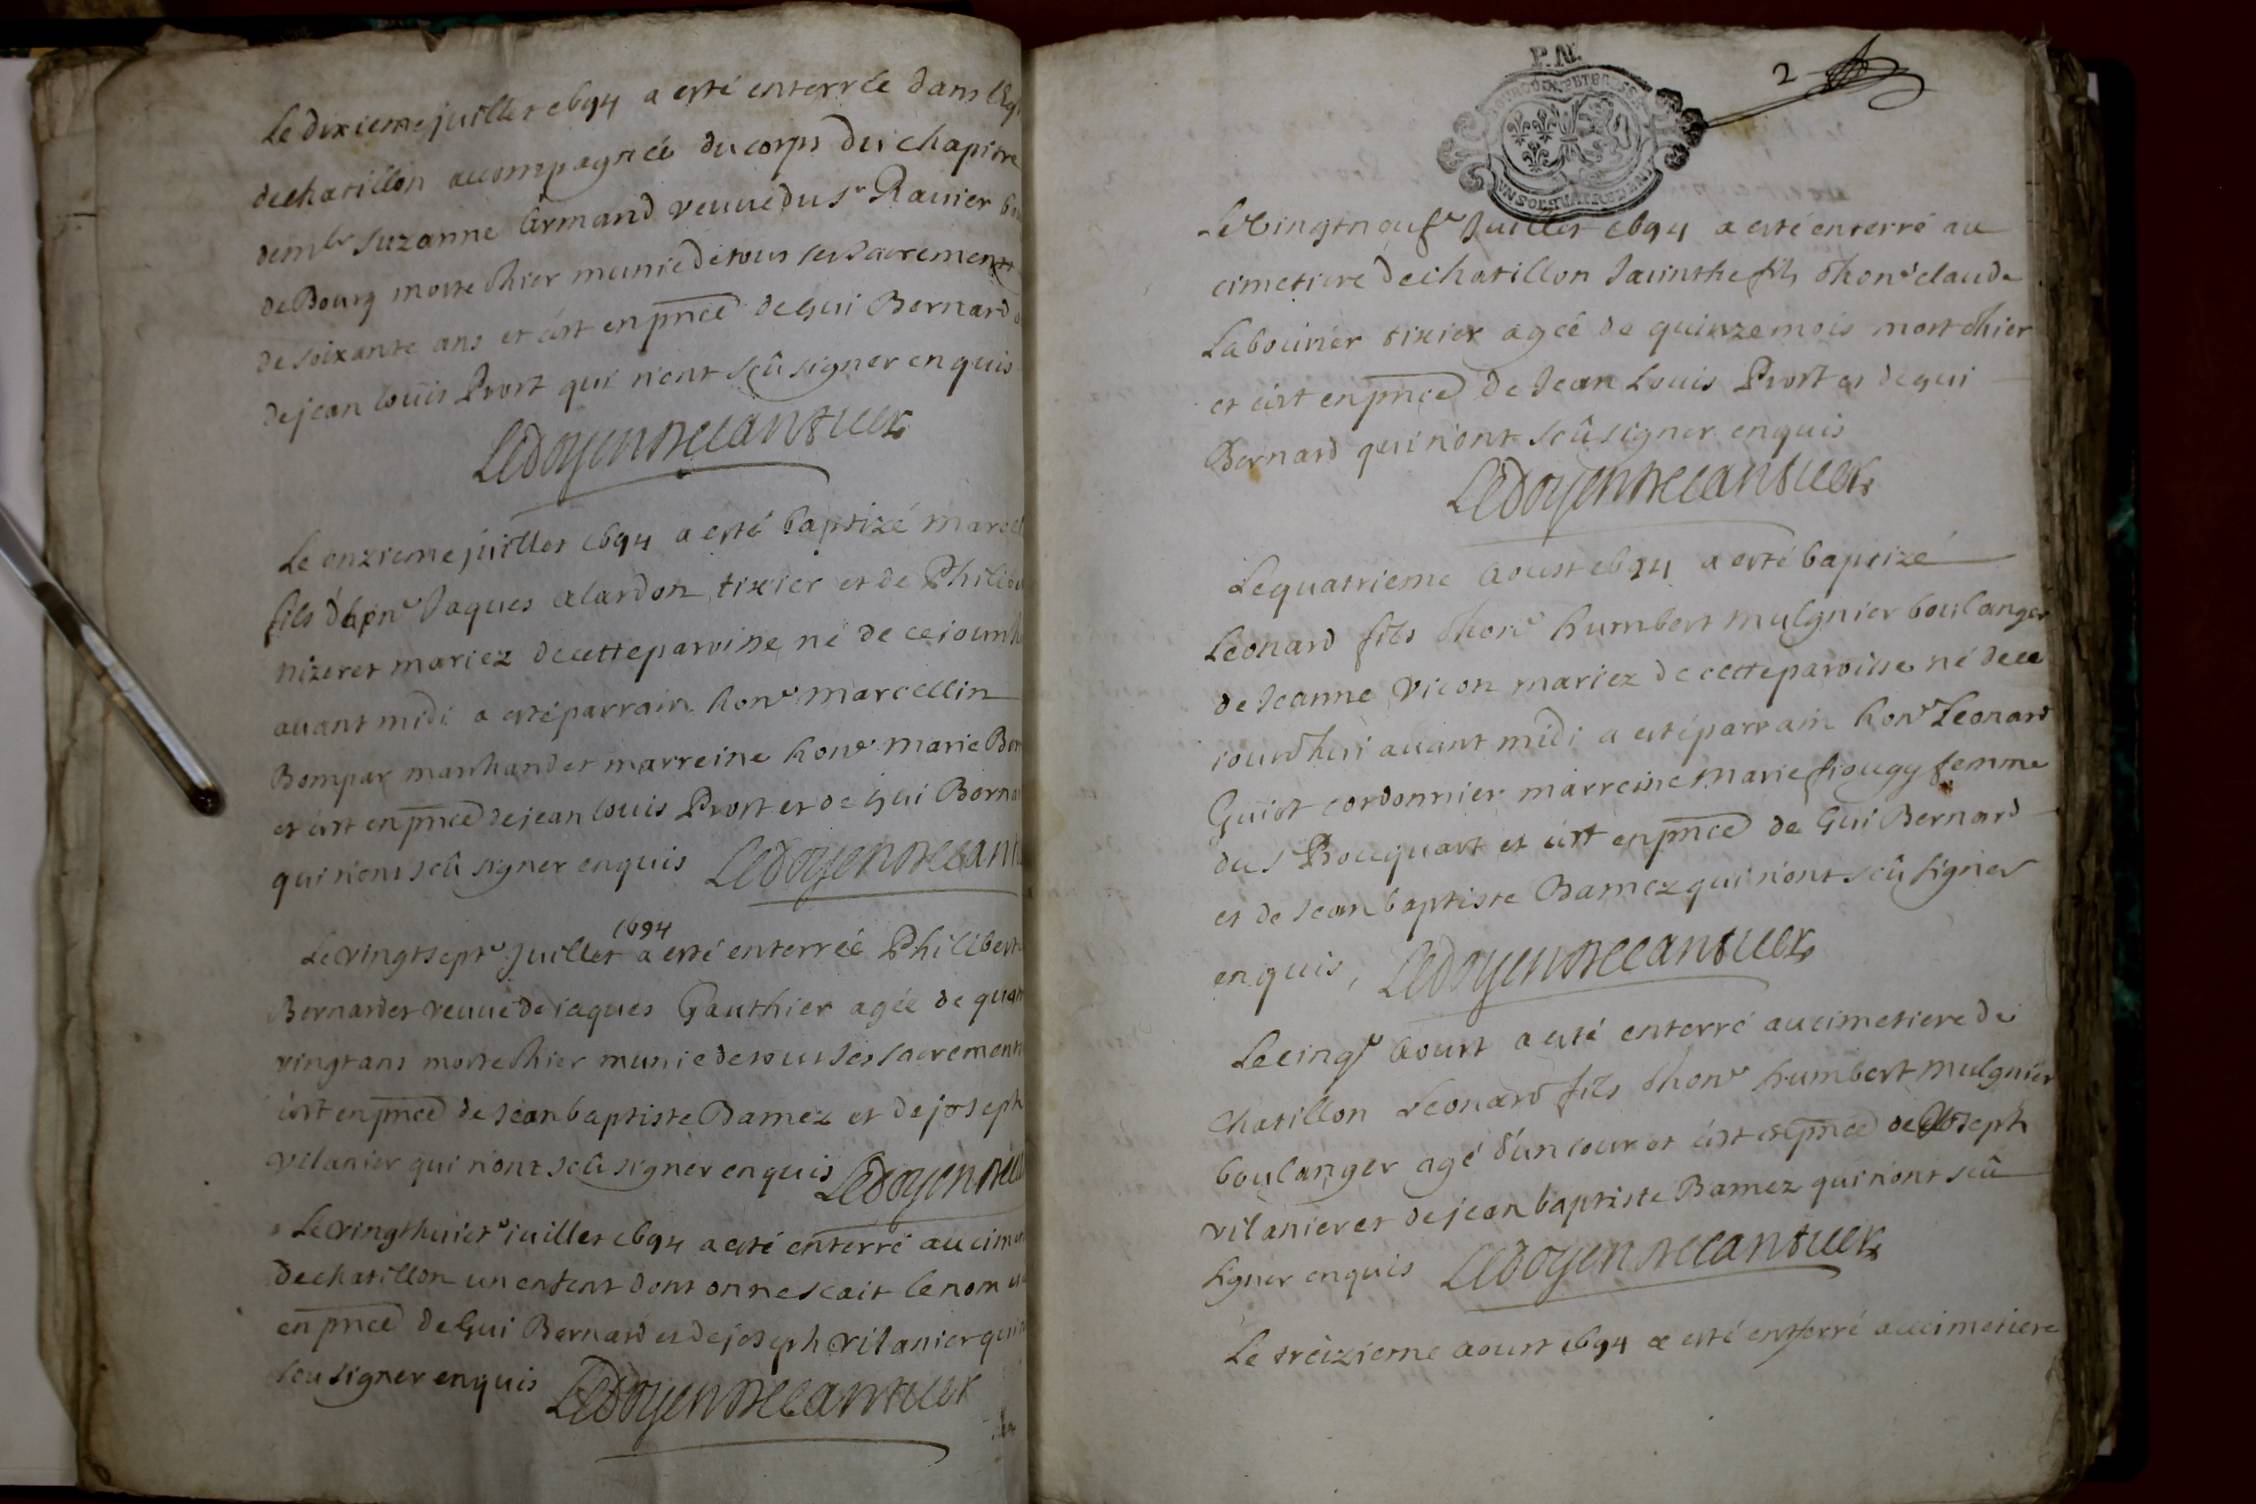 Le dixieme juillet 1694 a esté enterrée dans l'Egl
de chatillon accompagnée du corps du chapitre
demlle Suzanne Armand veuve du Sr Ravier
de Bourg morte Shier munie de tous ses sacrements
de soixante ans et c'est en pnce de Gui Bernard
de jean Louis Prost qui n'ont sçû signer enquis
Le doyen
Le onzieme juillet 1694 a esté baptizé Marcel
fils d'honn Jaques Alardon tixier et de Philib
nizeret mariez de cette paroisse né de ce iourdh
avant midi a esté parrain honn Marcellin
Bompar marchand et marreine honn Marie Bom
et c'est en pnce de jean Louis Prost et de Gui Berna
qui n'ont sçû signer enquis Le doyen
1694
Le vingt sept juillet a esté enterrée Philibert
Bernardet veuve de iaques Gauthier agée de quatr
vingt ans morte hier munie de tous les sacrements
c'est en pnce de Jean baptiste Bamez et de joseph
vilanier qui n'ont sçû signer enquis Le doyen
Le vingt huict iuillet 1694 a esté enterré au cim
de chatillon un enfent dont on ne scait le nom
en pnce de Gui Bernard et de joseph vilanier qui
sceu signer enquis Le doyen
P. N.
2
Le Vingt neuf Juillet 1694 a esté enterré au
cimetiere de chatillon Jacinthe fils d'honn claude
Labourier tixier agée de quinze mois mort d'hier
et c'est en pnce de Jean Louis Prost et de gui
Bernard qui n'ont sçû signer enquis
Le doyen
Le quatrieme Aoust 1694 a esté baptizé
Leonard fils d'honn humbert mulgnier boulanger
de Jeanne vicon mariez de cette paroisse né de ce
iourdhui avant midi a esté parrain honn Leonard
Guiot cordonnier marreine Marie fiougy femme
du Sr Rocquart et c'est en pnce de Gui Bernard
et de Jean baptiste Bamez qui n'ont sçû signer
enquis, Le doyen
Le cinq Aoust a esté enterré au cimetiere de
Chatillon Leonard fils d'honn humbert mulgnier
boulanger agé d'un iour et c'est en pnce de Joseph
vilanier et de jean baptiste Bamez qui n'ont sçû
signer enquis Le doyen
Le treizieme aoust 1694 a esté enterré au cimetiere